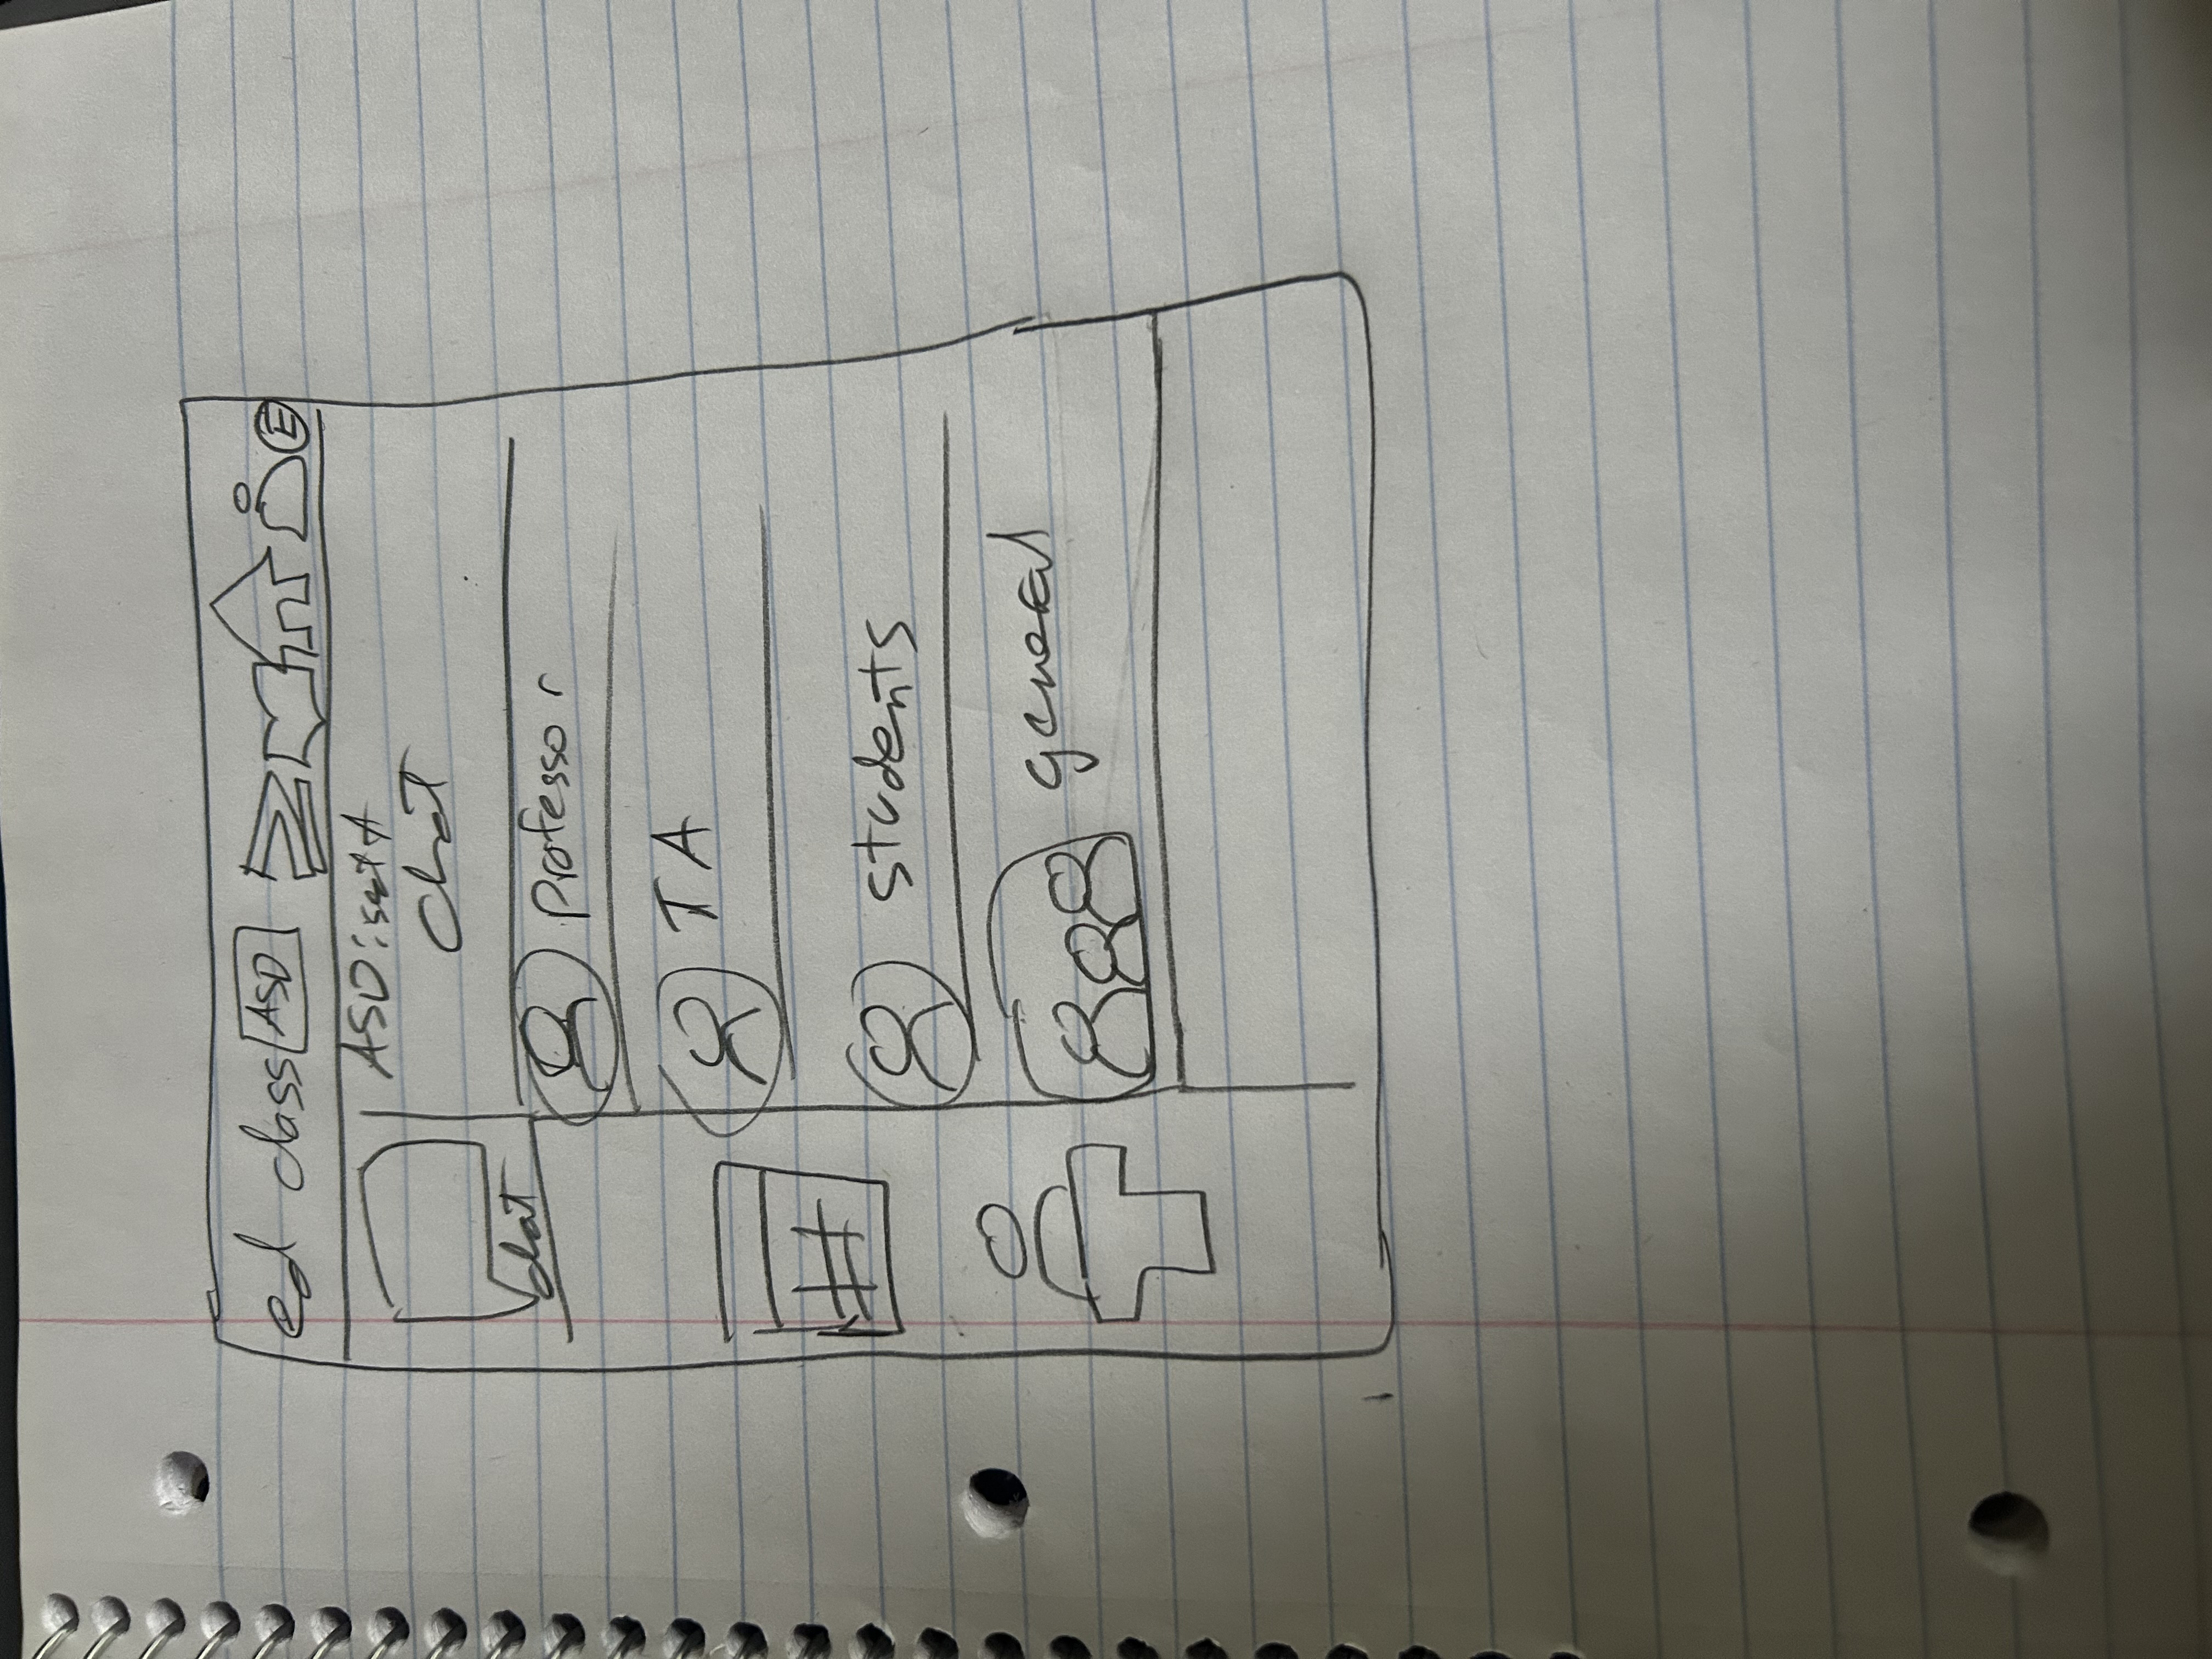 ed class ASD E
ASD: sect A
chat
chat
professor
TA
students
general